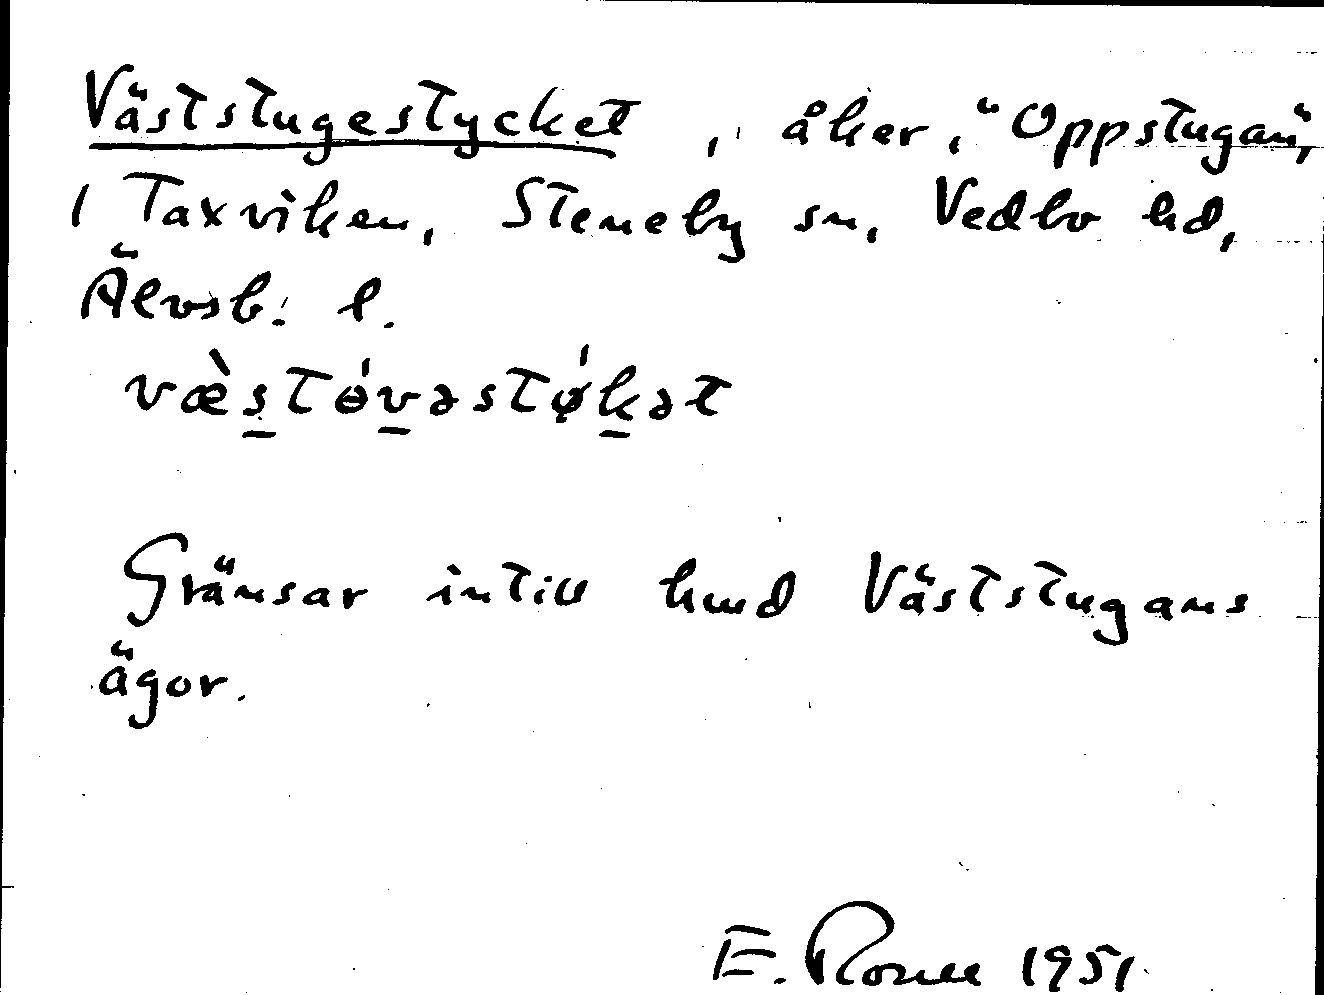 Väststugestycket, åker, "Oppstugan",
i Taxviken, Steneby sn, Vedbo hd,
Älvsb. l.
væ̀s̲tɵ́v̲əstǿk̲ət
Gränsar intill hmd Väststugans
ägor.
E. Rosell 1951